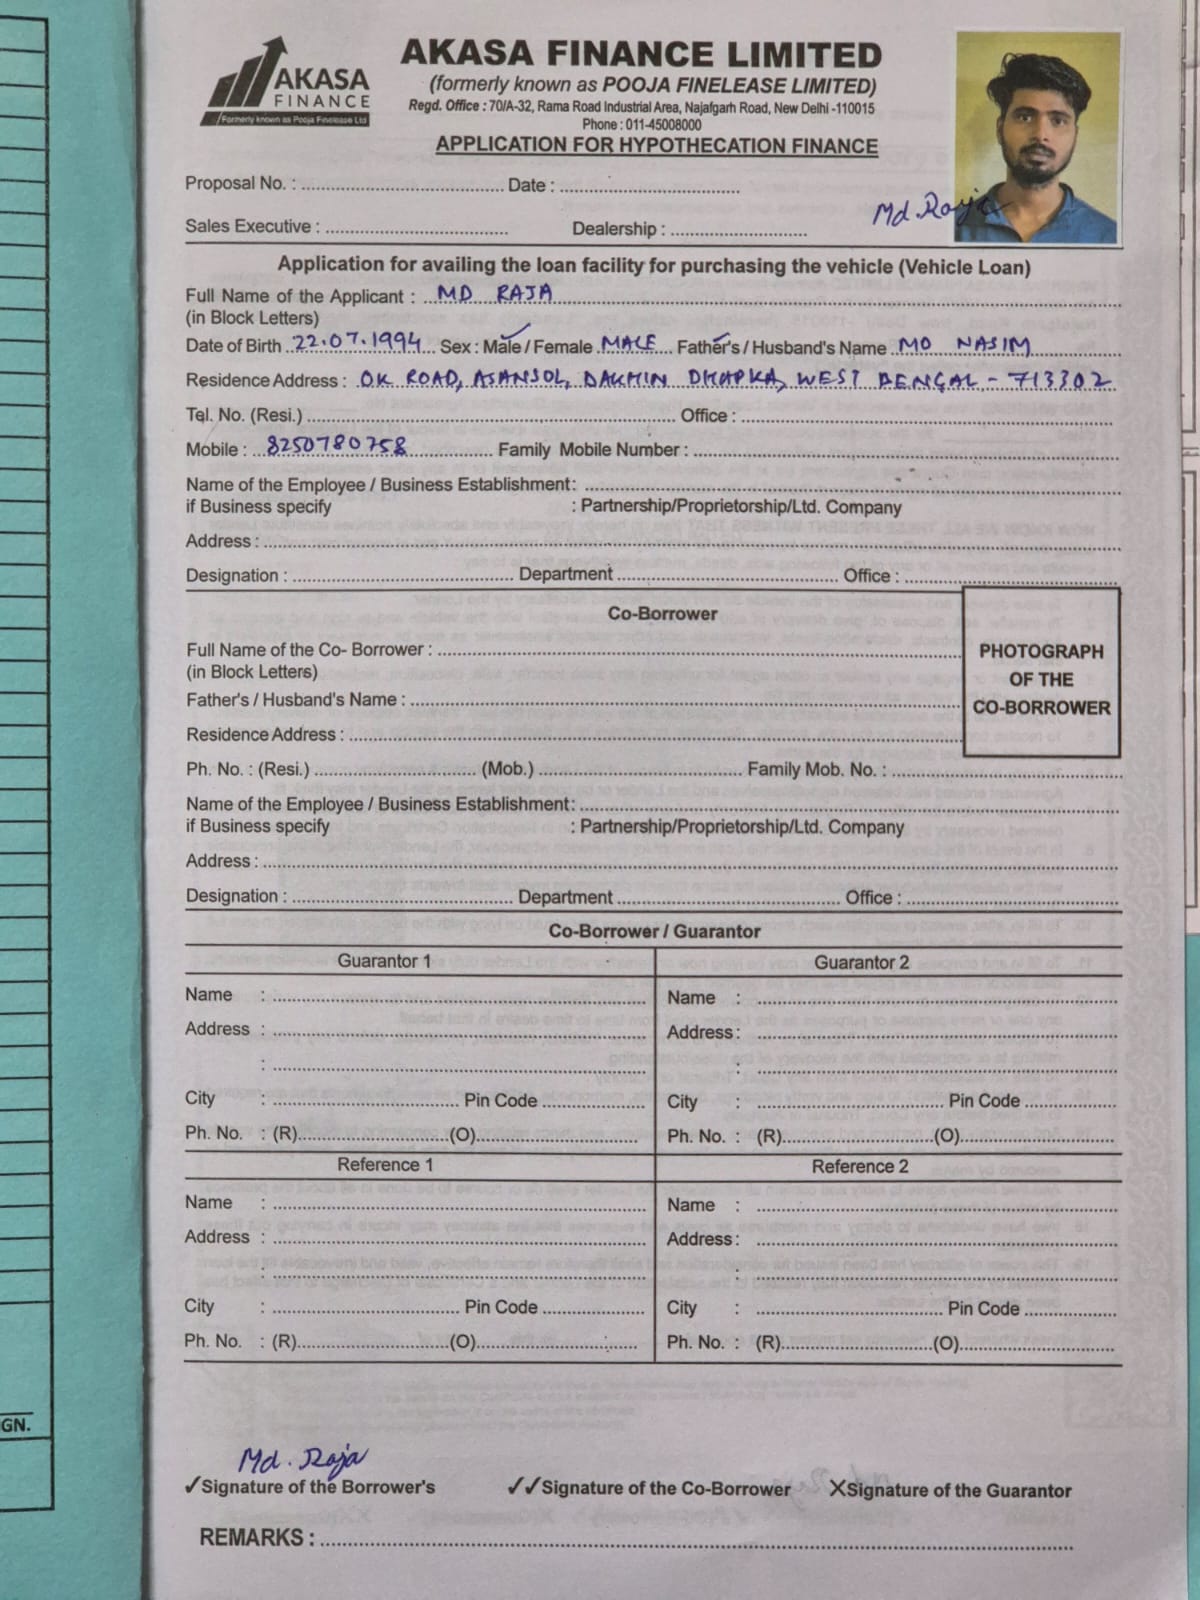 AKASA FINANCE LIMITED
AKASA
FINANCE
Formerly known as Pooja Finelease Ltd
(formerly known as POOJA FINELEASE LIMITED)
Regd. Office : 70/A-32, Rama Road Industrial Area, Najafgarh Road, New Delhi -110015
Phone : 011-45008000
APPLICATION FOR HYPOTHECATION FINANCE
Proposal No. : Date :
Md. Raja
Sales Executive : Dealership :
Application for availing the loan facility for purchasing the vehicle (Vehicle Loan)
Full Name of the Applicant : MD RAJA
(in Block Letters)
Date of Birth 22.07.1994 Sex : Male / Female MALE Father's / Husband's Name MD NASIM
Residence Address : OK ROAD, ASANSOL, DAKHIN DHAPKA, WEST BENGAL - 713302
Tel. No. (Resi.) Office :
Mobile : 8250780758 Family Mobile Number :
Name of the Employee / Business Establishment:
if Business specify : Partnership/Proprietorship/Ltd. Company
Address :
Designation : Department Office :
Co-Borrower
Full Name of the Co- Borrower :
(in Block Letters)
Father's / Husband's Name :
Residence Address :
PHOTOGRAPH
OF THE
CO-BORROWER
Ph. No. : (Resi.) (Mob.) Family Mob. No. :
Name of the Employee / Business Establishment:
if Business specify : Partnership/Proprietorship/Ltd. Company
Address :
Designation : Department Office :
Co-Borrower / Guarantor
Guarantor 1 Guarantor 2
Name : Name :
Address : Address :
: :
City : Pin Code City : Pin Code
Ph. No. : (R) (O) Ph. No. : (R) (O)
Reference 1 Reference 2
Name : Name :
Address : Address :
: :
City : Pin Code City : Pin Code
Ph. No. : (R) (O) Ph. No. : (R) (O)
GN.
Md. Raja
✓Signature of the Borrower's ✓✓Signature of the Co-Borrower XSignature of the Guarantor
REMARKS :